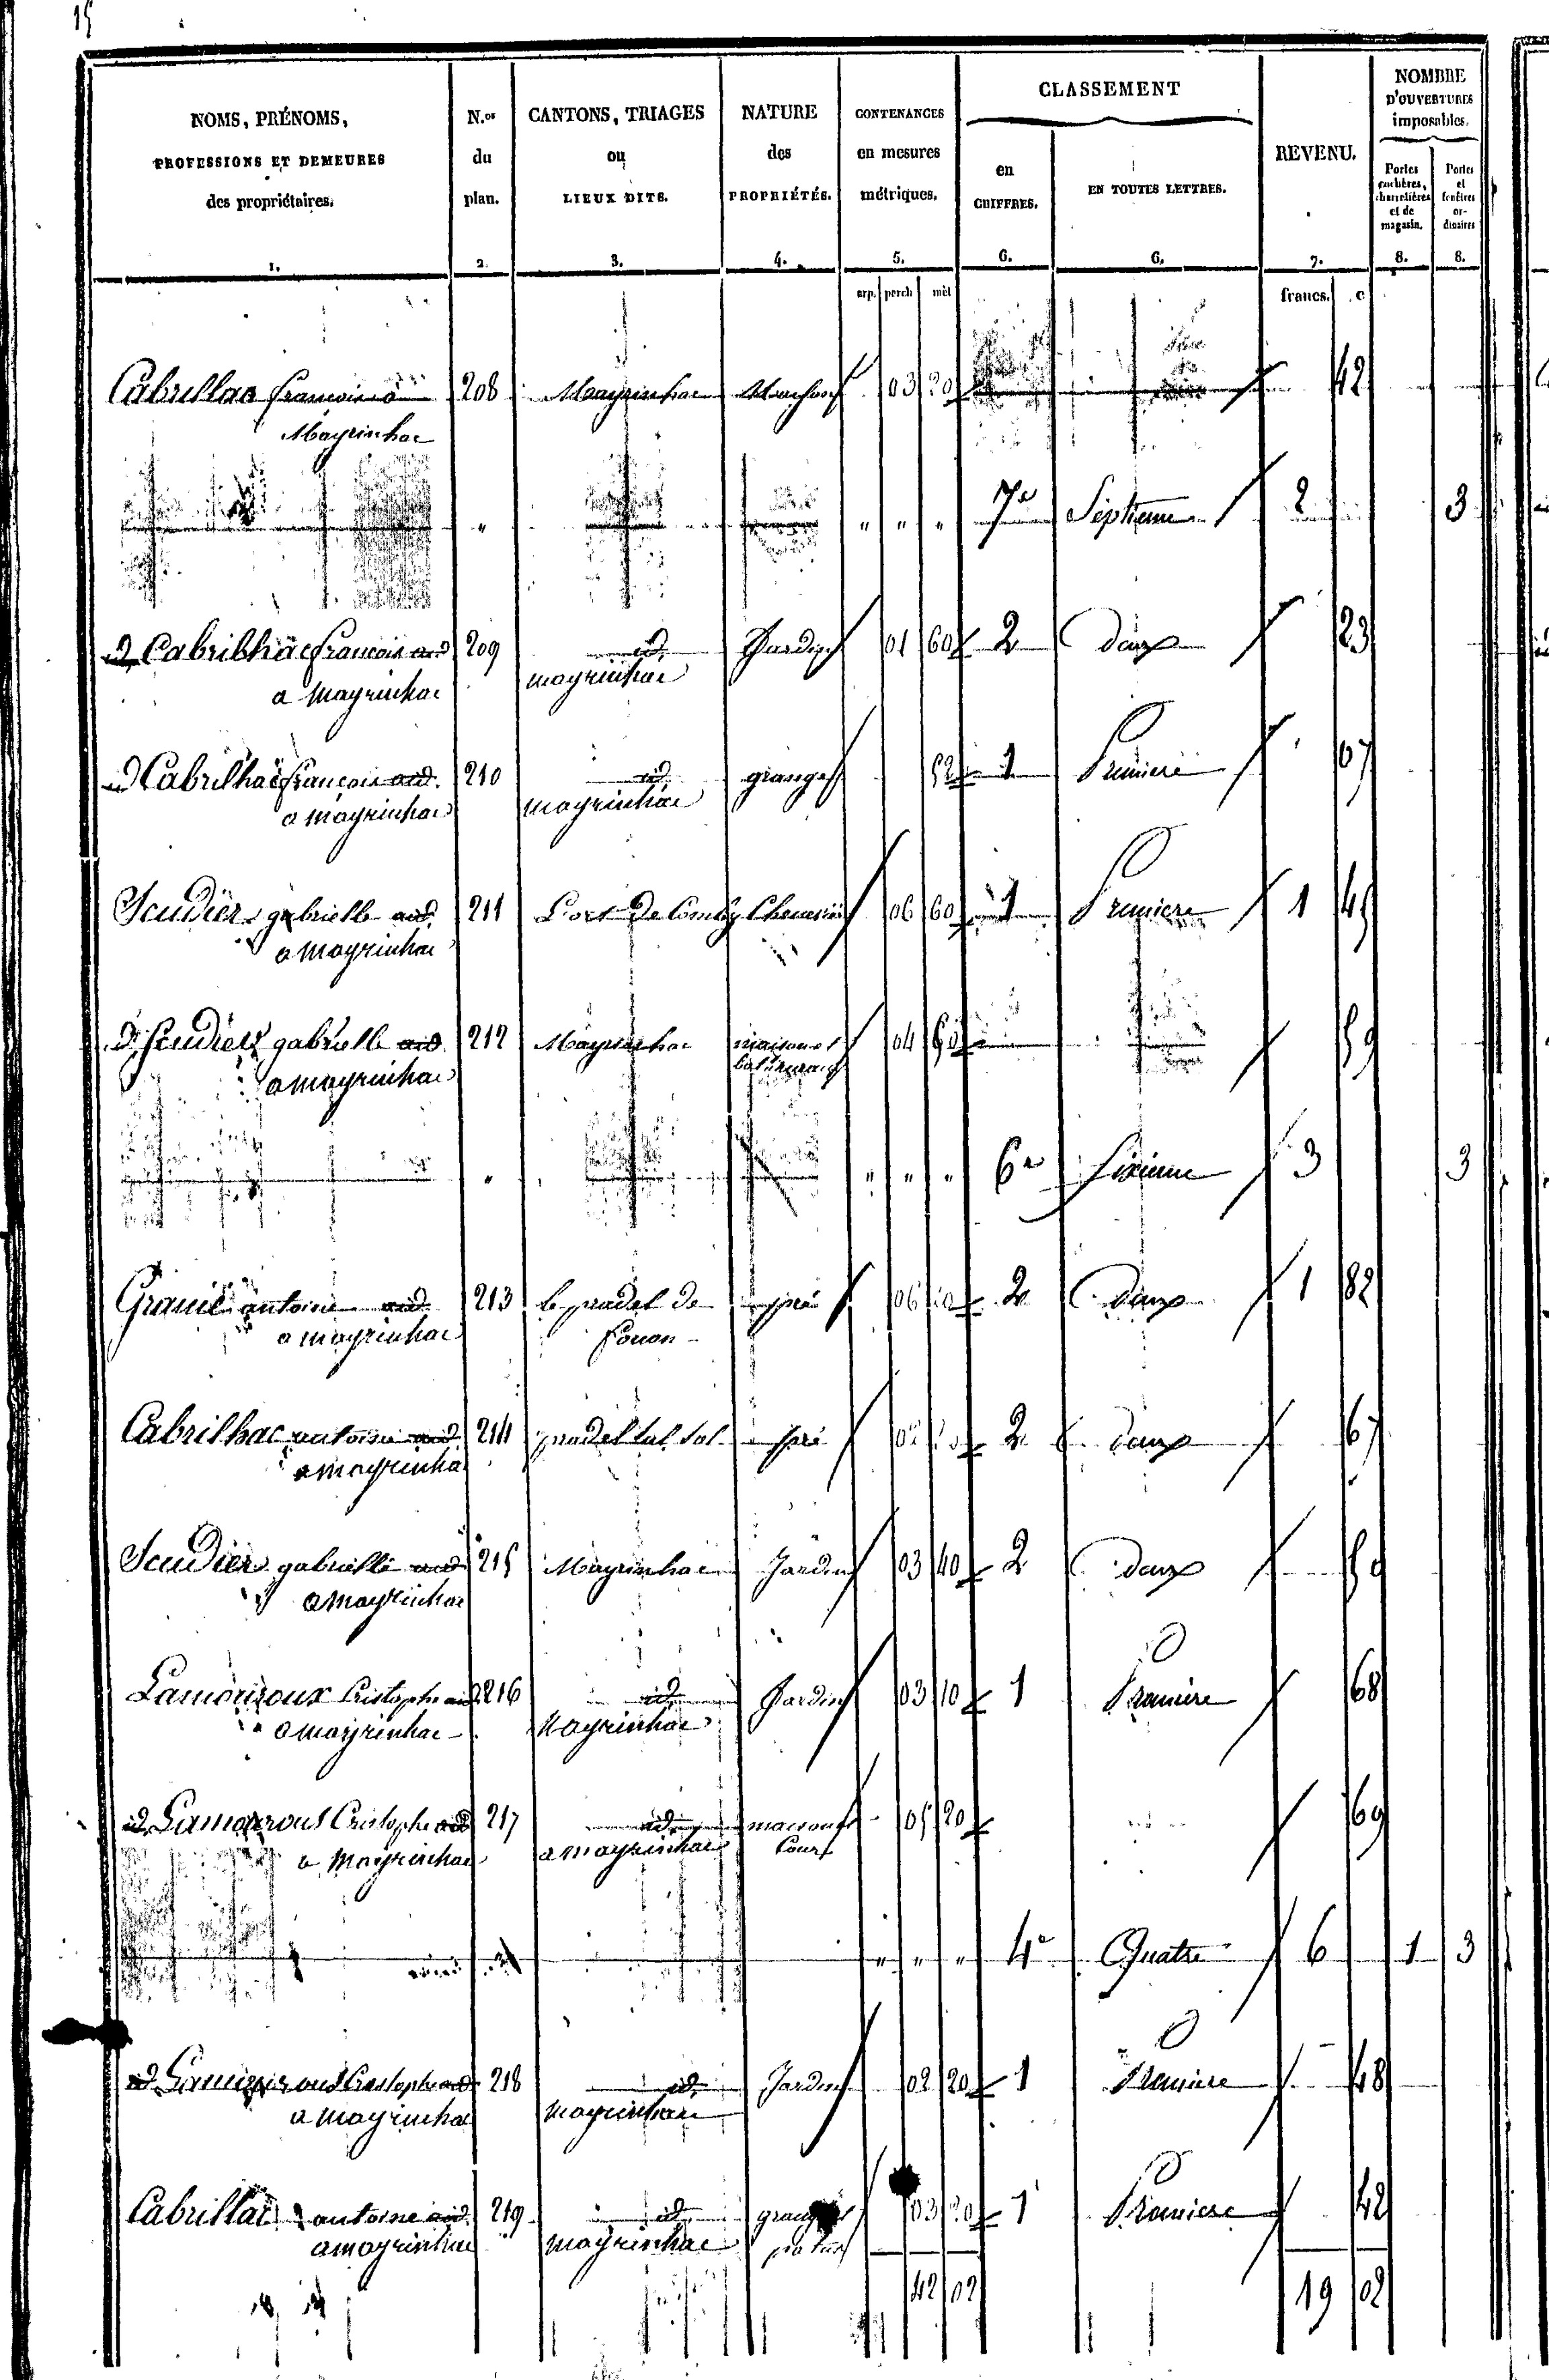 15
NOMS, PRÉNOMS,
PROFESSIONS ET DEMEURES
des propriétaires.
1.
N.os
du
plan.
2.
CANTONS, TRIAGES
ou
LIEUX DITS.
3.
NATURE
des
PROPRIÉTÉS.
4.
CONTENANCES
en mesures
métriques.
5.
CLASSEMENT
en
CHIFFRES.
6.
EN TOUTES LETTRES.
6.
REVENU.
7.
NOMBRE
D'OUVERTURES
imposables.
Portes
cochères,
charretières
et de
magasin.
8.
Portes
et
fenêtres
or-
dinaires
8.
arp. perch mèt francs. c
Cabrillac francois à 208 Mayrinhac 03 20 42
Mayrinhac
" " " " 7e Septieme 2 3
id Cabrilhac francois aid 209 id Jardin 01 60 2 deux 23
a mayrinhac mayrinhac
id Cabrilhac francois aid 210 id grange 52 1 Premiere 07
a mayrinhac mayrinhac
Scudier gabrielle aid 211 Lort de Comby 06 60 1 Premiere 1 45
a mayrinhac
id Scudier gabrielle aid 212 Mayrinhac maison et 04 59
a mayrinhac batiment
" " " " 6e Sixieme 3 3
antoine aid 213 le pradel de pré 06 2 deux 1 82
a mayrinhac
Cabrilhac antoine aid 214 pradel pré 2 deux 67
a mayrinha
Scudier gabrielle aid 215 Mayrinhac Jardin 03 40 2 deux 59
a mayrinhac
Lamouroux Cristophe aid 216 id Jardin 03 10 1 Premiere 68
a mayrinhac Mayrinhac
id Lamouroux Cristophe aid 217 id maison et 05 20 69
a Mayrinhac a mayrinhac Cour
" " " 4e Quatre 6 1 3
id Lamouroux Cristophe aid 218 id Jardin 02 20 1 Premiere 48
a mayrinhac mayrinhac
Cabrillac antoine aid 219 id 03 20 1 Premiere 42
a mayrinhac mayrinhac
42 02 19 02